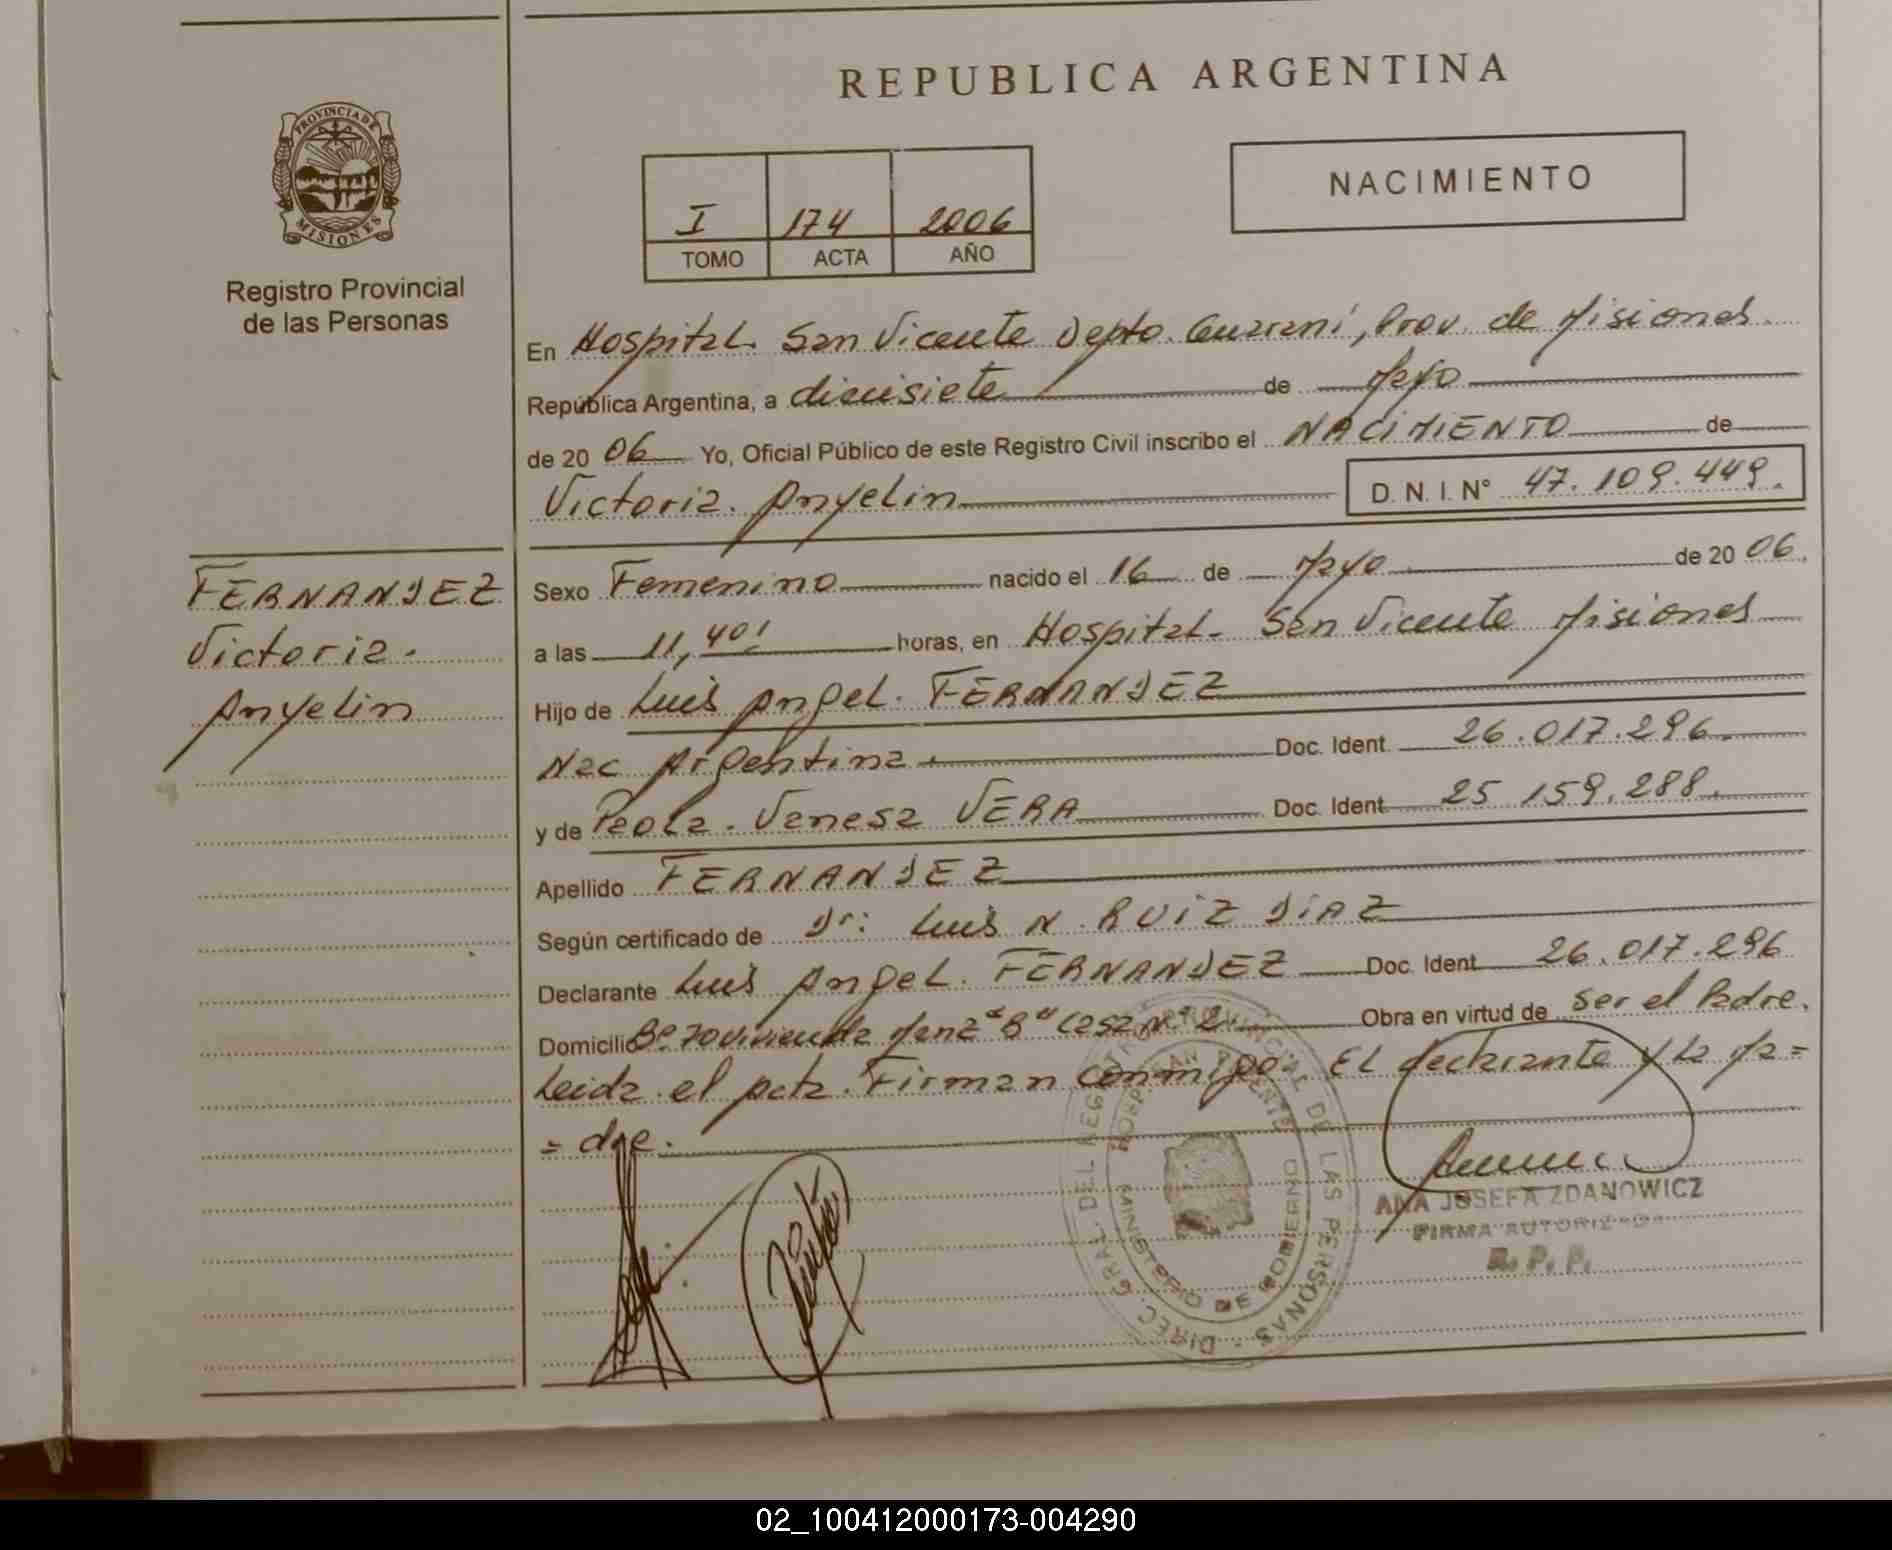 REPUBLICA ARGENTINA
PROVINCIA DE MISIONES
Registro Provincial
de las Personas
I 174 2006
TOMO ACTA AÑO
NACIMIENTO
En Hospital. San Vicente Depto. Guaraní, Prov. de Misiones.
República Argentina, a diecisiete de Mayo
de 20 06 Yo, Oficial Público de este Registro Civil inscribo el NACIMIENTO de
Victoria. Anyelin D. N. I. N° 47.109.449.
FERNANDEZ
Victoria.
Anyelin
Sexo Femenino nacido el 16 de Mayo de 20 06.
a las 11,40' horas, en Hospital. San Vicente Misiones
Hijo de Luis Angel. FERNANDEZ
Nac Argentina. Doc. Ident. 26.017.296.
y de Paola. Vanesa VERA Doc. Ident. 25 159.288.
Apellido FERNANDEZ
Según certificado de Dr: Luis N. RUIZ DIAZ
Declarante Luis Angel. FERNANDEZ Doc. Ident. 26.017.296
Domicilio B° 70 vivienda Manz "B" Casa N° 2. Obra en virtud de ser el Padre.
Leida el acta. Firman conmigo. El declarante y la Ma=
= dre.
DIREC. GRAL DEL REGISTRO PROVINCIAL DE LAS PERSONAS
MINISTERIO DE GOBIERNO
ANA JOSEFA ZDANOWICZ
FIRMA AUTORIZADA
R. P. P.
02_100412000173-004290